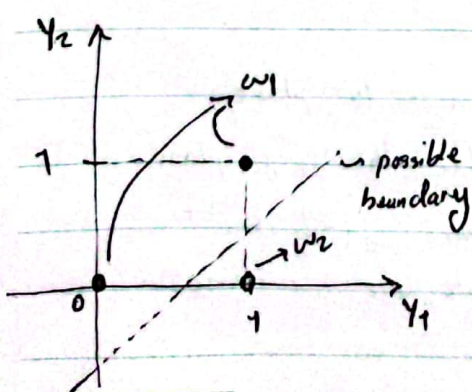 Y2
ω1
1
possible
boundary
ω2
0
1
Y1